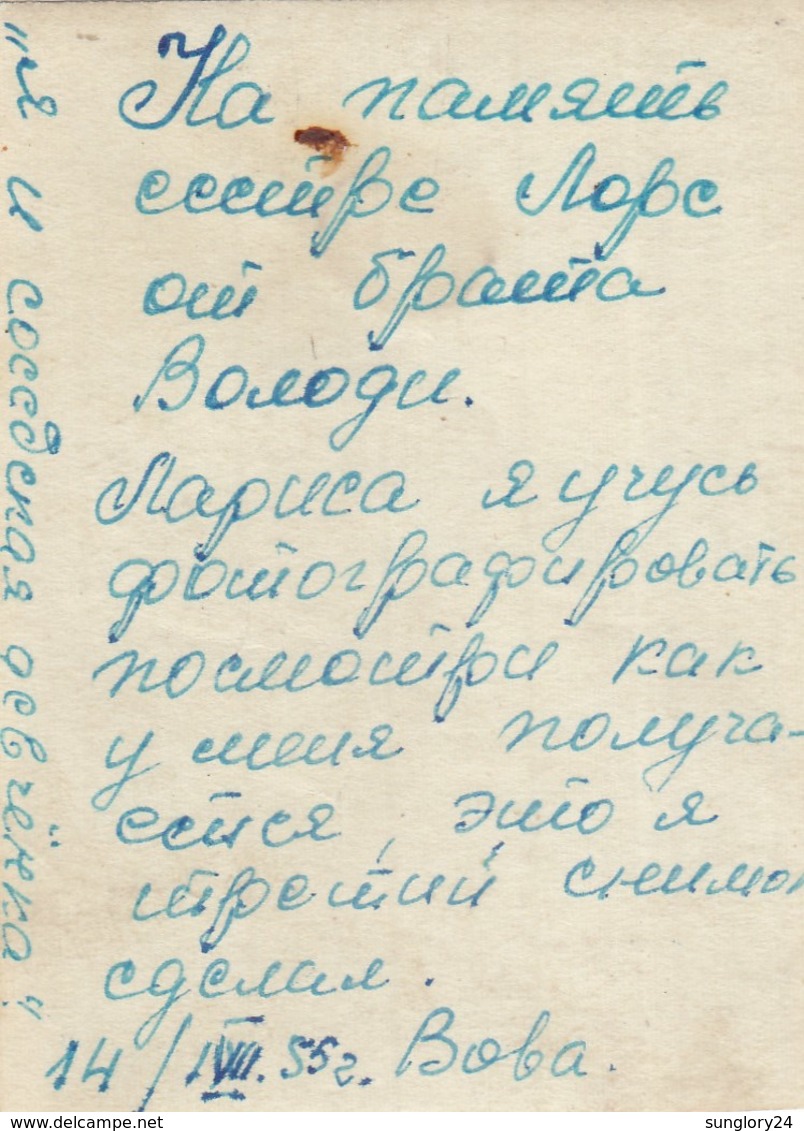 На память
сестре Ларе
от брата
Володи.
Лариса я учусь
фотографировать
посмотри как
у меня получа-
ется, это я
третий снимок
сделал.
14/VIII.55г. Вова.
"Я и соседская девчёнка"
sunglory24